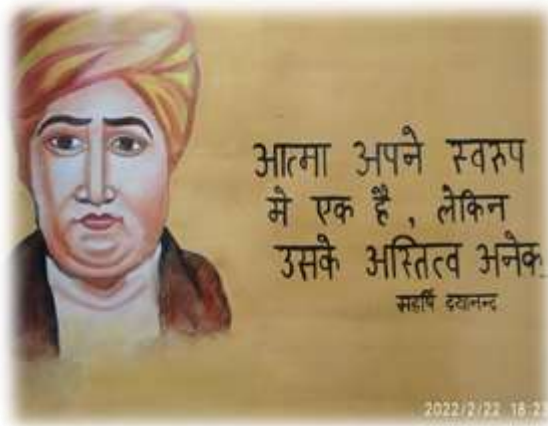 आत्मा अपने स्वरुप
मे एक है , लेकिन
उसके अस्तित्व अनेक.
महर्षि दयानन्द
2022/2/22 18:23